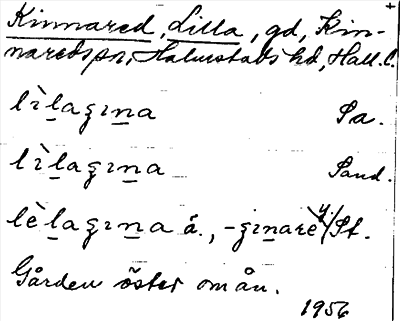 Kinnared, Lilla, gd, Kin-
nareds sn, Halmstads hd, Hall. l.
lìlagɪna Pa.
lìlagɪna Sand.
lèlagɪna ä., -gɪnarè y./St.
Gården öster om ån.
1956